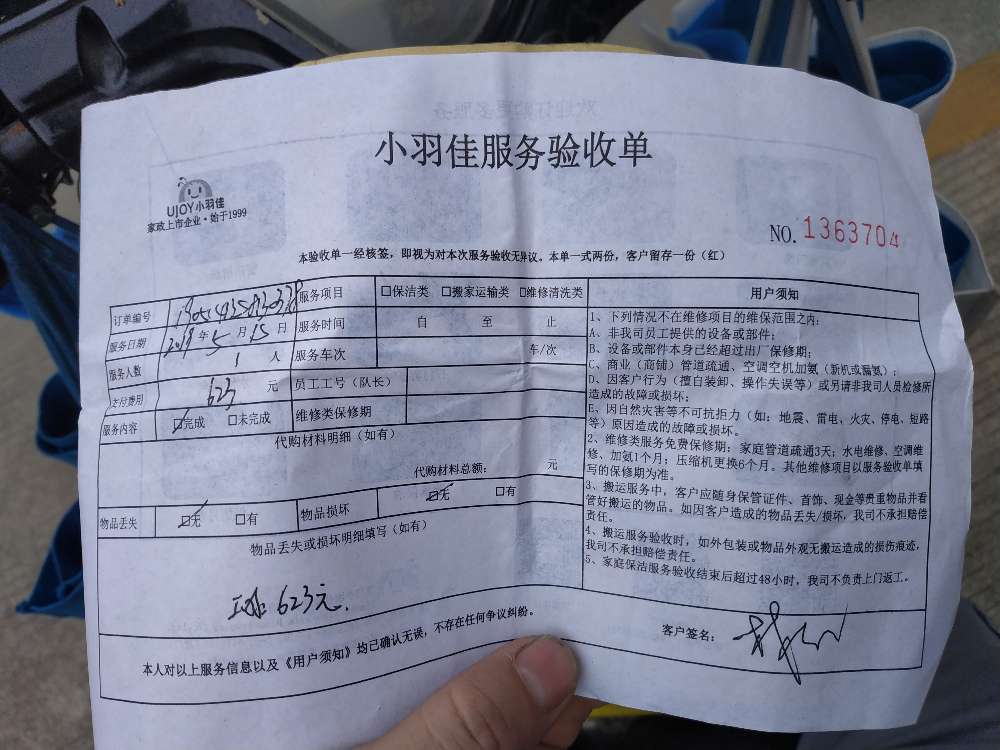 小羽佳服务验收单
UJOY小羽佳
家政上市企业·始于1999
NO. 1363704
本验收单一经核签，即视为对本次服务验收无异议。本单一式两份，客户留存一份（红）
订单编号
服务项目 □保洁类 □搬家运输类 □维修清洗类
服务日期 2019年5月15日
服务时间 自 至 止
服务人数 1 人
服务车次 车/次
支付费用 623 元
员工工号（队长）
服务内容 ☑完成 □未完成
维修类保修期
代购材料明细（如有）
代购材料总额： 元
物品丢失 ☑无 □有
物品损坏 ☑无 □有
物品丢失或损坏明细填写（如有）
623元.
用户须知
1、下列情况不在维修项目的维保范围之内：
A、非我司员工提供的设备或部件；
B、设备或部件本身已经超过出厂保修期；
C、商业（商铺）管道疏通、空调空机加氨（新机或漏氨）；
D、因客户行为（擅自装卸、操作失误等）或另请非我司人员检修所
造成的故障或损坏；
E、因自然灾害等不可抗拒力（如：地震、雷电、火灾、停电、短路
等）原因造成的故障或损坏。
2、维修类服务免费保修期：家庭管道疏通3天；水电维修、空调维
修、加氨1个月；压缩机更换6个月。其他维修项目以服务验收单填
写的保修期为准。
3、搬运服务中，客户应随身保管证件、首饰、现金等贵重物品并看
管好搬运的物品。如因客户造成的物品丢失/损坏，我司不承担赔偿
责任。
4、搬运服务验收时，如外包装或物品外观无搬运造成的损伤痕迹，
我司不承担赔偿责任。
5、家庭保洁服务验收结束后超过48小时，我司不负责上门返工。
本人对以上服务信息以及《用户须知》均已确认无误，不存在任何争议纠纷。
客户签名：